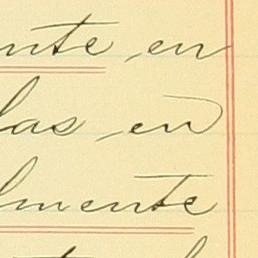 nte en
las en
lmente